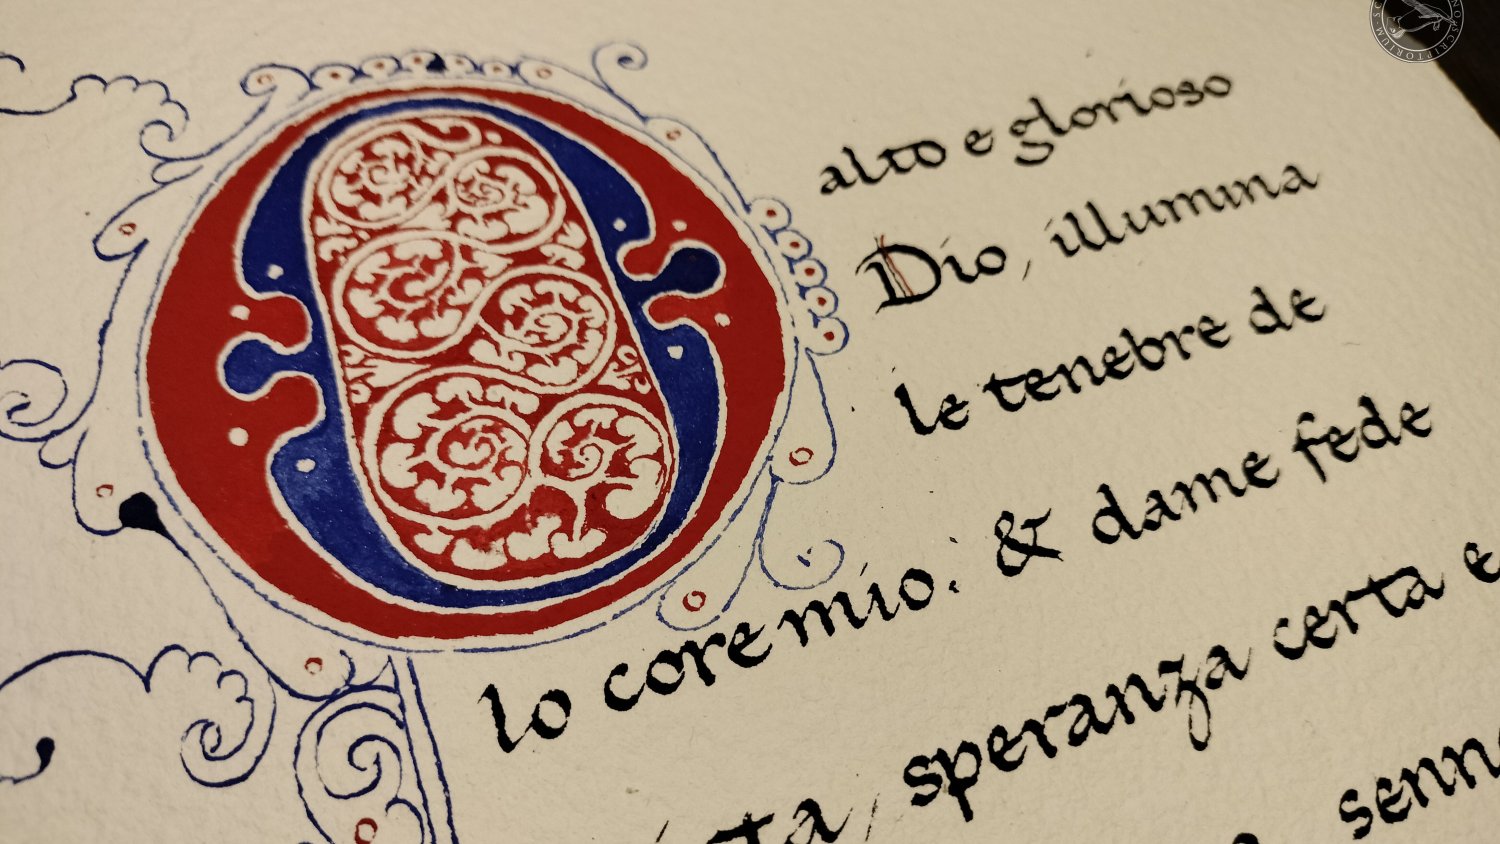 O alto e glorioso
Dio, illumina
le tenebre de
lo core mio. & dame fede
speranza certa e